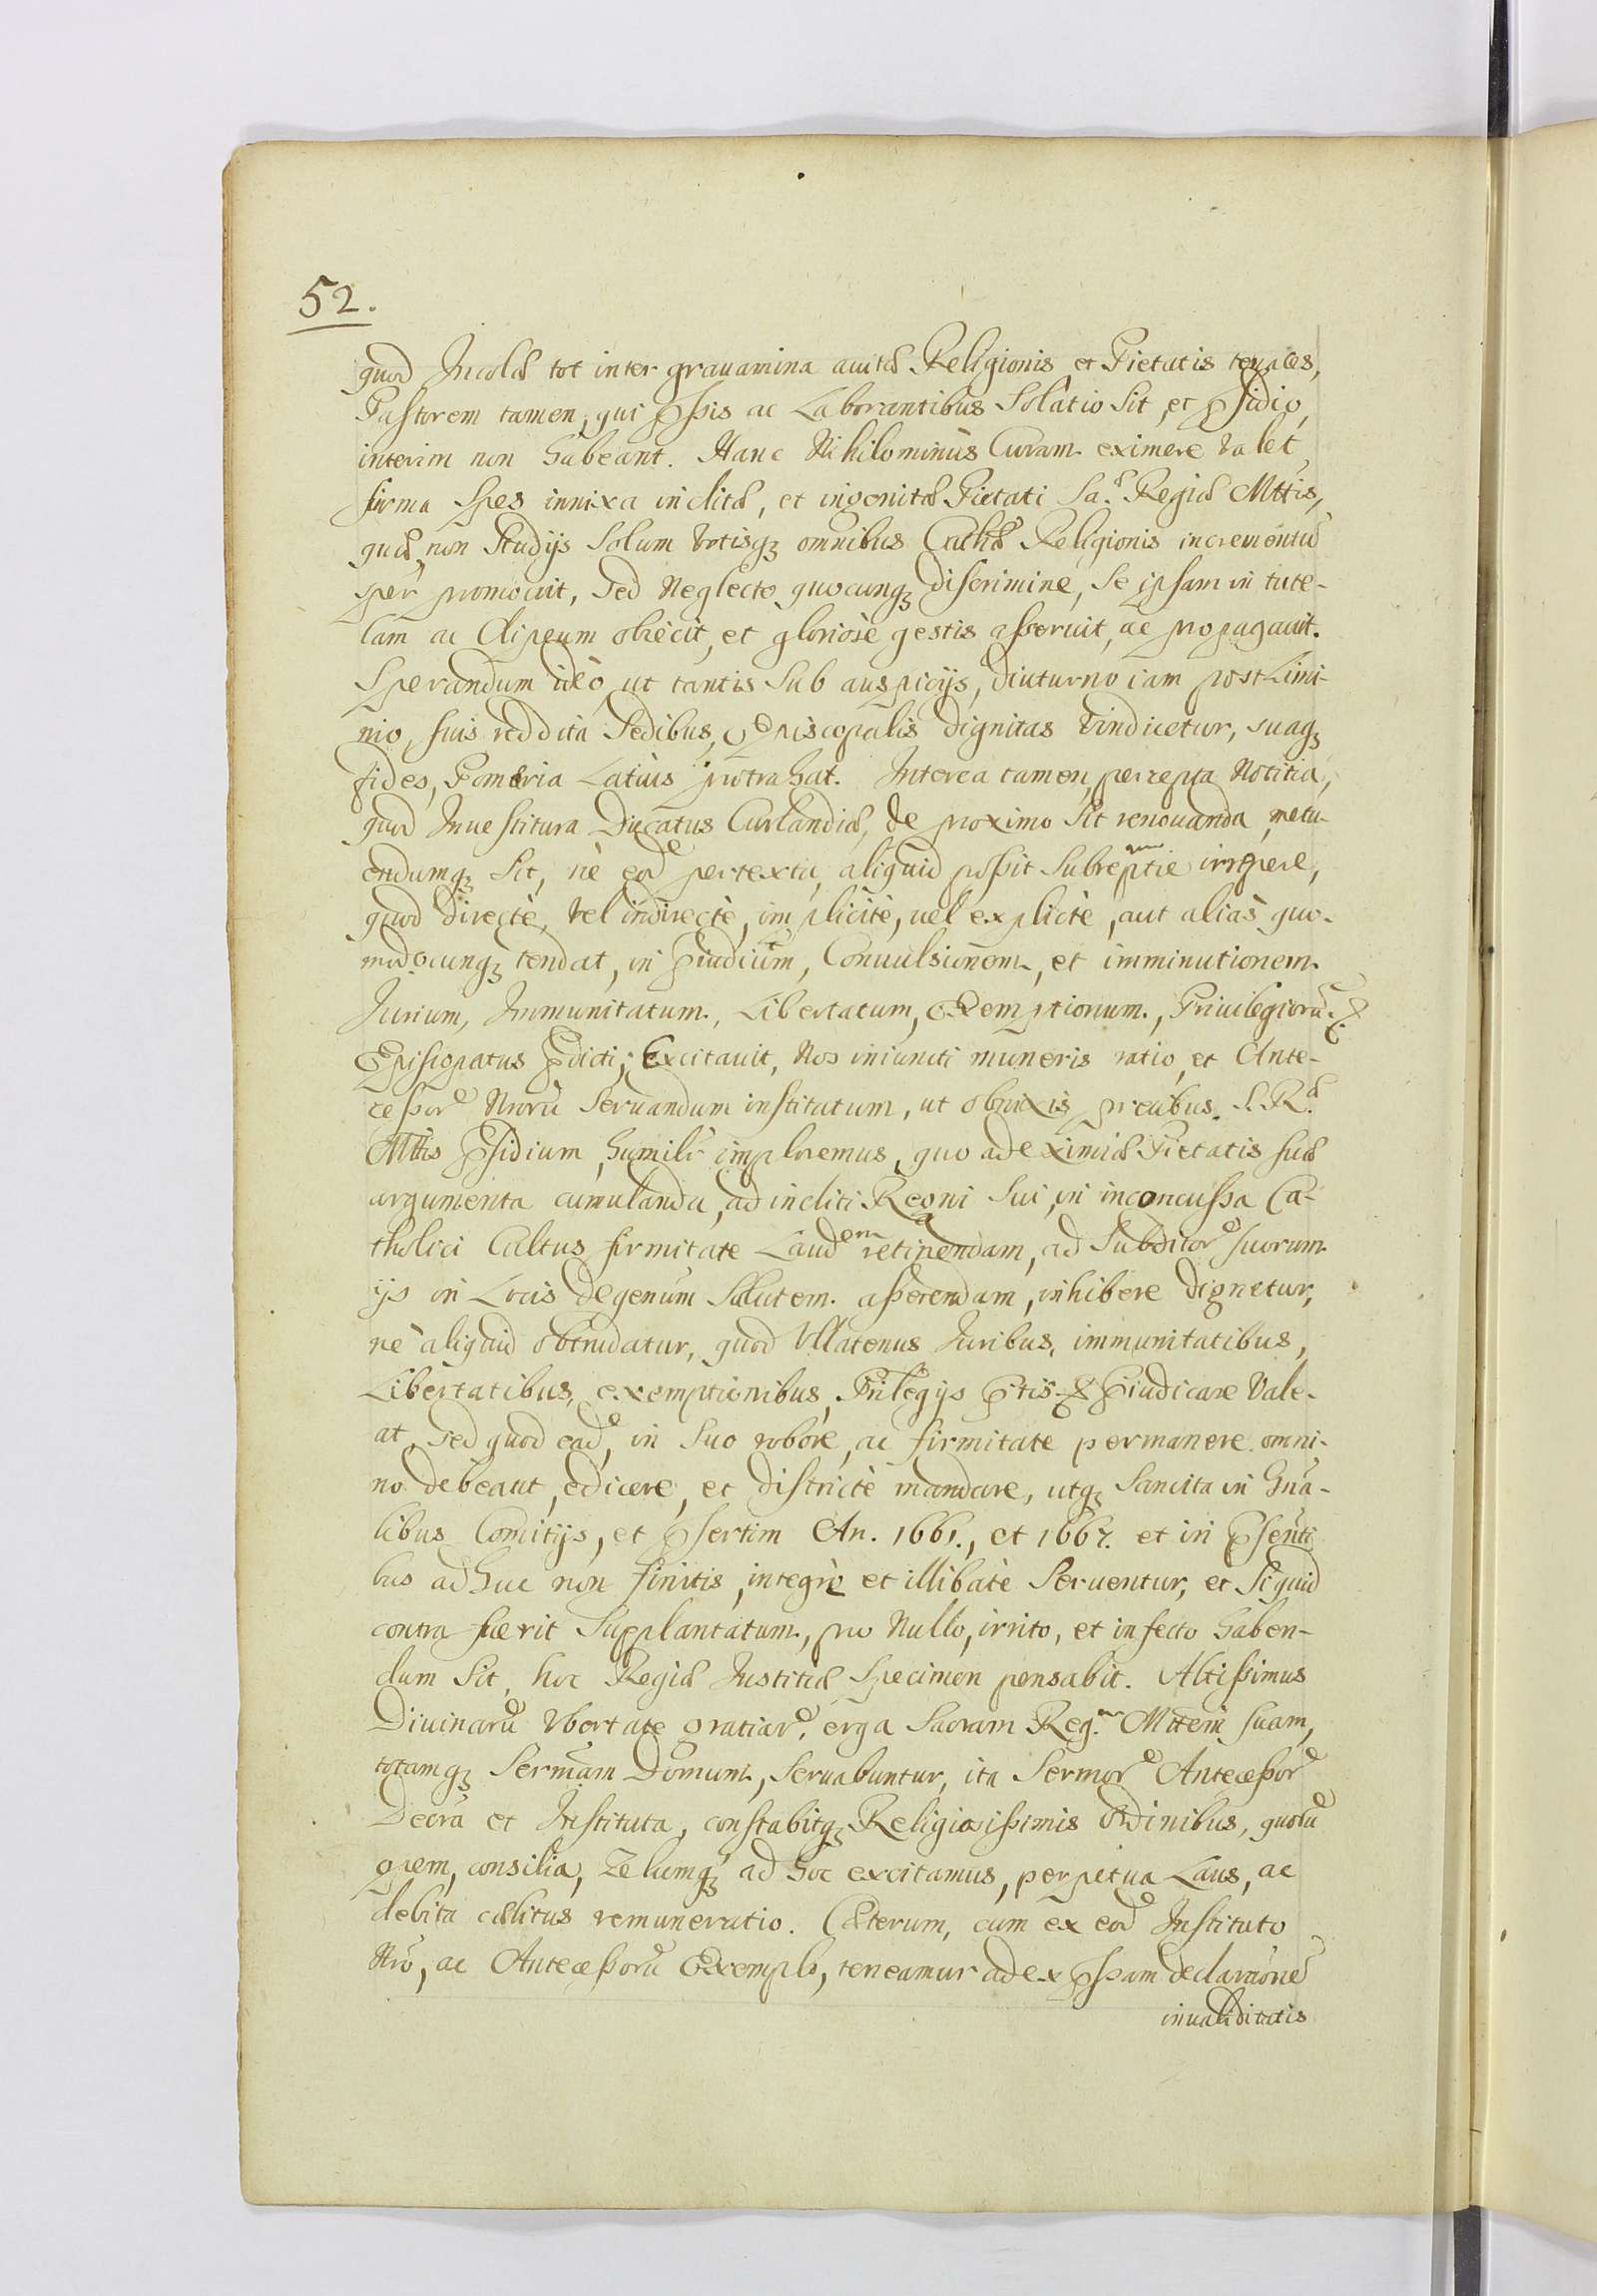 52.
quod Incolæ tot inter grauamina auitæ Religionis et Pietatis tenaces,
Pastorem tamen, qui pssis ac Laborantibus Solatio Sit, et psidio,
interim non habeant. Hanc Nihilominùs Curam eximere valet
firma Spes innixa inclitæ, et ingenitæ Pietati Sa.æ Regiæ Mttis,
quæ non Studijs Solum Votisq; omnibus Cathæ Religionis incrementū
sper promouit, Sed Neglecto quocunq; discrimine, Se ipsam in tute-
lam ac Clipeum obiecit, et gloriosè gestis asseruit, ac propagauit.
Sperandum ideò, ut tantis Sub auspicijs, diuturno iam postLimi-
nio, suis reddita Sedibus, Episcopalis dignitas Vindicetur, suaq;
fides, Pomeria Latiùs protrahat. Interea tamen, percepta Notitia,
quod Inuestitura Ducatus Curlandiæ, de proximo Sit renouanda, metu-
endumq; Sit, nè eod pertextu, aliquid possit Subreptie irrepere,
quod directè, Vel indirectè, implicitè, uel explicitè, aut aliàs quo-
modocunq; tendat, in piudiūm, Conuulsionem, et imminutionem
Iurium, Immunitatum, Libertatum, Exemptionum, Priuilegiorū &
Episcopatus pdicti; Excitauit, Nos iniuncti muneris ratio, et Ante-
cessor Nrorū Seruandum institutum, ut obnixis precibus S. R.æ
Mttis psidium, humilr imploremus, quo ad eximiæ Pietatis suæ
argumenta cumulanda, ad incliti Regni Sui, in inconcussa Ca-
tholici Cultus firmitate Laudem retinendam, ad Subditor suorum
ijs in Locis degenūm Salutem asserendam, inhibere dignetur,
nè aliquid obtrudatur, quod Vllatenus Iuribus, immunitatibus,
Libertatibus, exemptionibus, Prilegijs ptis & piudicare Vale-
at, Sed quod ead, in Suo robore, ac firmitate permanere omni-
no debeant, edicere, et districtè mandare, utq; Sancita in Gnā-
libus Comitijs, et psertim An. 1661., et 1667. et in psenti
bus adhuc non finitis, integrè et illibatè Seruentur, et Siquid
contra fuerit Supplantatum, pro Nullo, irrito, et infecto haben-
dum Sit, hoc Regiæ Iustitiæ Specimen pensabit. Altissimus
Diuinarū Vbertate gratiar, erga Sacram Reg.m Mttem suam,
totamq; Sermam Domum, Seruabuntur, ita Sermor Antecessor
Decra et Instituta, constabitq; Religiosissimis Ordinibus, quorū
opem, consilia, Zelumq; ad hoc excitamus, perpetua Laus, ac
debita cælitus remuneratio. Cæterum, cum ex eod Instituto
Nrō, ac Antecessorū Exemplo, teneamur ad expssam declarāonē
inualiditatis